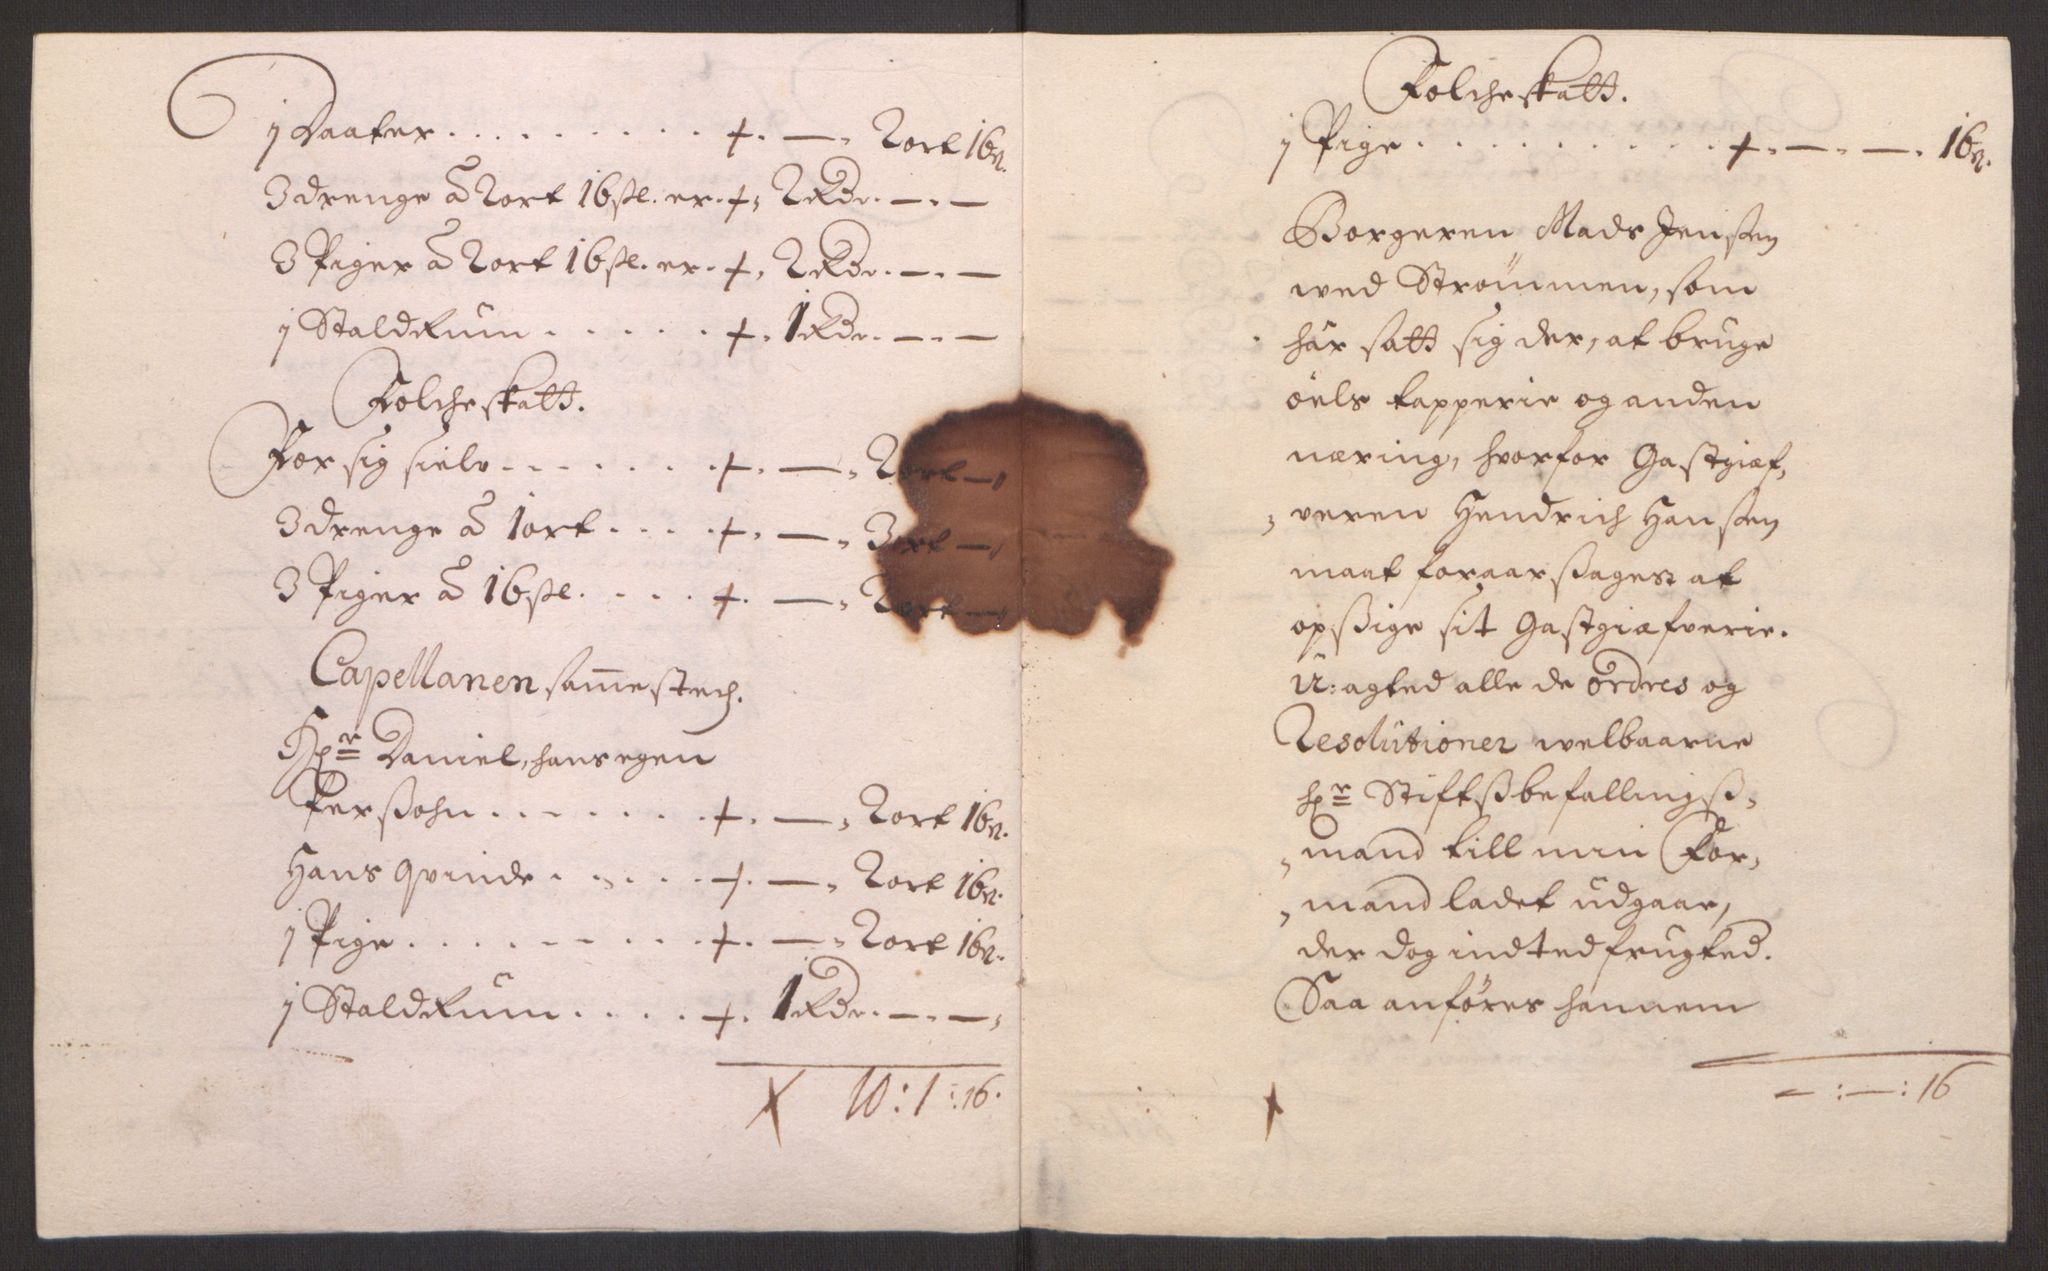 j Daater . . . . . . . . . +. — . 2 ort 16 sl.
3 drenge â 2 ort 16 sl. er. +, 2 Rdr. — . —
3 Piger â 2 ort 16 sl. er. +, 2 Rdr. — . —
j Staldrum . . . . . +. 1 Rdr. — . —
Folcheskatt.
For sig sielv . . . . . . . +. — . 2 ort —
3 drenge â 1 ort . . . . +. — . 3 ort —
3 Piger â 16 sl. . . . . +. — . 2 ort —
Capellanen sam̄estech.
Hr. Daniel, hans egen
Perssohn . . . . . . . +. — . 2 ort 16 sl.
Hans qvinde . . . . . +. — . 2 ort 16 sl.
j Pige . . . . . . . . . +. — . 2 ort 16 sl.
j Staldrum . . . . . +. 1 Rdr. — . — .
10 : 1 : 16.
Folcheskatt.
j Pige . . . . . . . . . . +. — . — . 16 sl.
Borgeren Mads Jenssen
wed Strømmen, som
har satt sig der, at bruge
öels tapperie og anden
næring, hvorfor Gastgiæf-
veren Hendrich Hanssen
maat foraarssages at
opssige sit Gastgiæfverie.
U:agted alle de ordres og
Resolutioner welbaarne
hr. Stiftsbefallingss-
mand till min For-
mand ladet udgaar,
der dog indted frugted.
Saa anföres hannem
— : — : 16